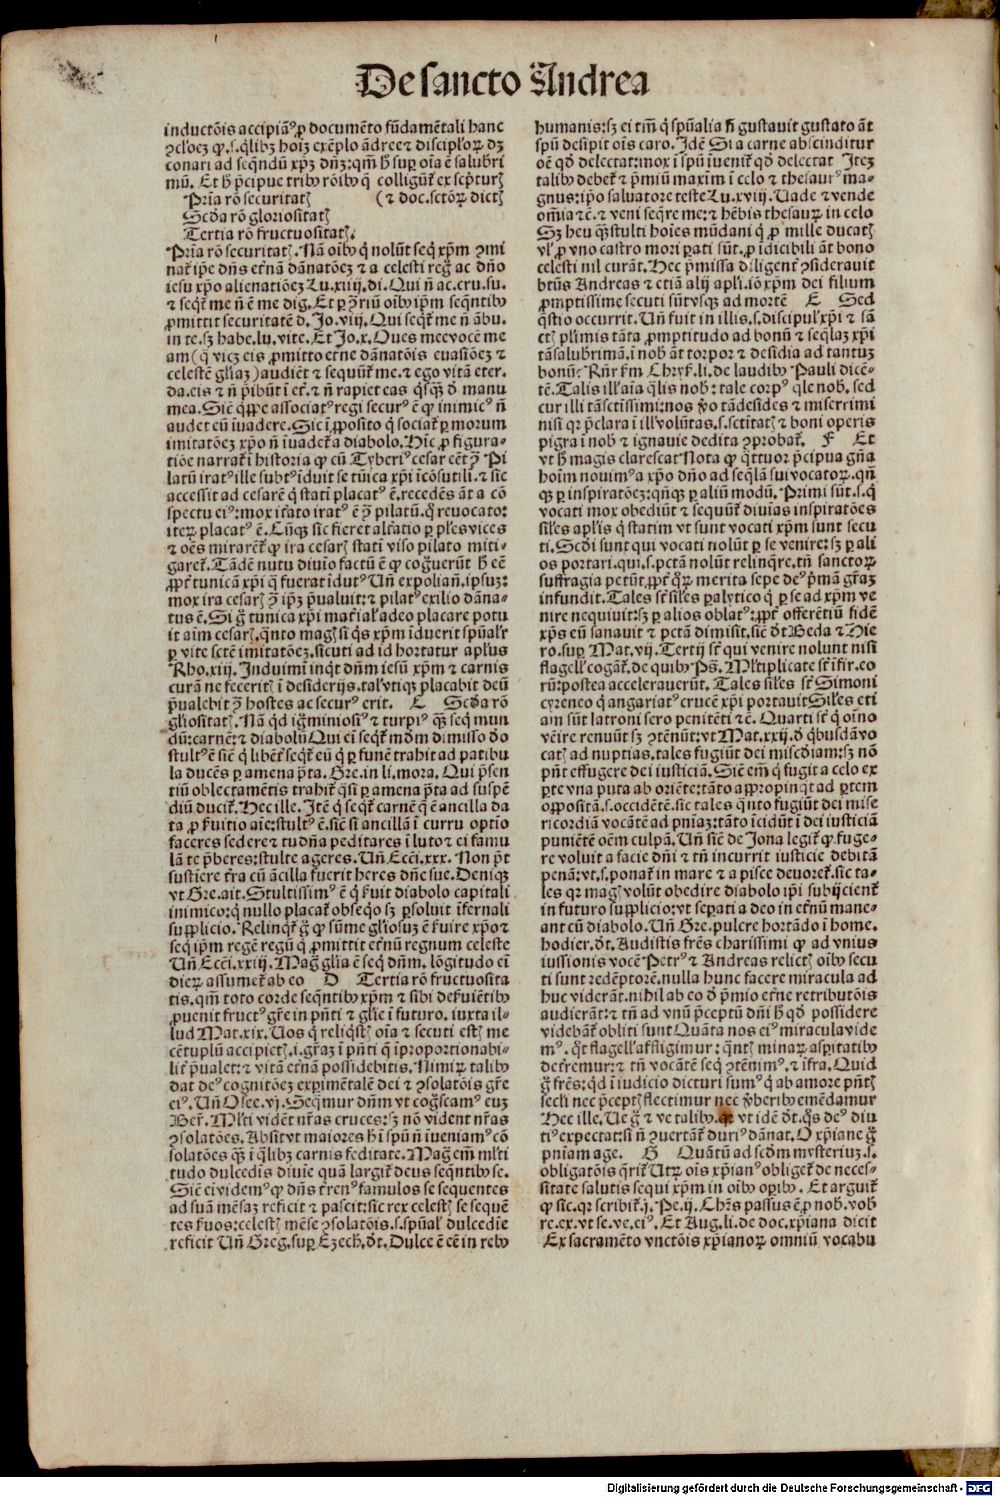 De sancto Andrea
inductõis accipiãꝰ ꝓ documẽto fũdamẽtali hanc
ꝯclꝰoeꝫ ꝙ .s. q̃libꝫ hoĩꝫ exẽplo ãdree ⁊ disciploꝝ dꝫ
conari ad seq̃ndũ xp̃ꝫ dñꝫ: qm̃ h̃ suꝑ oĩa ẽ salubri
mũ. Et h̃ p̃cipue tribꝰ rõibꝰ q̃ colligũt̃ ex sc̃pturꝭ
Pria rõ securitatꝭ (⁊ doc. sctõꝝ dictꝭ
Scd̃a rõ gloriositatꝭ
Tertia rõ fructuositatꝭ.
Pria rõ securitatꝭ. Nã oĩbꝰ q̃ nolũt seq̃ xp̃m ꝯmi
nat̃ ip̃e dñs etẽnã dãnatõeꝫ ⁊ a celesti reg̃ ac dño
iesu xp̃o alienatiõeꝫ Lu. xiiij. di. Qui ñ ac. cru. su.
⁊ seq̃t̃ me ñ ẽ me dig. Et ꝑ ꝯ̃riũ oĩbꝰ ip̃m seq̃ntibꝰ
ꝓmittit securitatẽ d. Jo. viij. Qui seq̃t̃ me ñ ãbu.
in te. sꝫ habe. lu. vite. Et Jo. x. Oues mee vocẽ me
am (q̃ vicꝫ eis ꝓmitto etẽne dãnatõis euasiõeꝫ ⁊
celestẽ gl̃iaꝫ) audiẽt ⁊ sequũt̃ me. ⁊ ego vitã eter.
da. eis ⁊ ñ p̃ibũt ĩ et̃. ⁊ ñ rapiet eas q̃sq̃ꝫ d̃ manu
mea. Sic̃ q̃ppe associatꝰ regi securꝰ ẽ ꝙ inimicꝰ ñ
audet eũ ĩuadere. Sic ĩ ꝓposito q̃ sociat̃ ꝑ morum
imitatõeꝫ xp̃o ñ ĩuadet̃ a diabolo. Hic ꝓ figura⸗
tiõe narrat̃ ĩ historia ꝙ cũ Tyberiꝰ cesar eẽt ꝯ̃ Pi
latũ iratꝰ ille subtꝰ ĩduit se tũica xp̃i ĩcõsutili. ⁊ sic
accessit ad cesarẽ q̃ statĩ placatꝰ ẽ. recedẽs ãt a cõ
spectu eiꝰ: mox iteʳato iratꝰ ẽ ꝯ̃ pilatũ. q̃ reuocatoꝛ:
iteꝝ placatꝰ ẽ. Cũqꝫ sic fieret alt̃atio ꝑ pl̃es vices
⁊ oẽs mirarẽt̃ ꝙ ira cesarꝭ statĩ viso pilato miti⸗
garet̃. Tãdẽ nutu diuĩo factũ ẽ ꝙ cog̃uerũt h̃ eẽ
ꝓpt̃ tunicã xp̃i q̃ fuerat ĩdutꝰ Uñ expoliañ. ipsuꝫ:
mox ira cesarꝭ ꝯ̃ ip̃ꝫ p̃ualuit: ⁊ pilatꝰ exilio dãna⸗
tus ẽ. Si g̃ tunica xp̃i mat̃ial̃ adeo placare potu
it aĩm cesarꝭ. q̃nto magꝭ si q̃s xp̃m ĩduerit sp̃ual̃r
ꝑ vite sctẽ imitatõeꝫ. sicuti ad id hortatur apl̃us
Rho. xiij. Induimĩ inq̃t dñm iesũ xp̃m ⁊ carnis
curã ne fecerit̃ ĩ desiderijs. tal̃ vtiqꝫ placabit deũ
p̃ualebit ꝯ̃ hostes ac securꝰ erit. C Scd̃a rõ
gl̃iositatꝭ. Nã q̃d ig̃miniosiꝰ ⁊ turpiꝰ q̃ꝫ seq̃ mun
dũ: carnẽ: ⁊ diabolũ Qui ei seq̃t̃ mũdm dimisso d̃o
stultꝰ ẽ sic̃ q̃ libẽt̃ seq̃t̃ eũ q̃ ꝑ funẽ trahit ad patibu
la ducẽs ꝑ amena p̃ta. Gre. in li. mora. Qui p̃sen
tiũ oblectamẽtis trahit̃ q̃si ꝑ amena p̃ta ad suspẽ
diũ ducit̃. Hec ille. Itẽ q̃ seq̃t̃ carnẽ q̃ ẽ ancilla da
ta ꝓ ẽuitio aĩe: stultꝰ ẽ. sic̃ si ancillã ĩ curru optĩo
faceres sedere ⁊ tu dña peditares ĩ luto ⁊ ei famu
lã te p̃beres: stulte ageres. Uñ Ecci. xxx. Non p̃t
sustiere t̃ra cũ ãcilla fuerit heres dñe sue. Deniqꝫ
vt Gre. ait. Stultissimꝰ ẽ q̃ ẽuit diabolo capitali
inimico: q̃ nullo placat̃ obseq̃o sꝫ ꝑsoluit ĩfernali
supplicio. Relinquit̃ g̃ ꝙ sũme gl̃iosuꝫ ẽ ẽuire xp̃o ⁊
seq̃ ip̃m regẽ regũ q̃ ꝓmittit etẽnũ regnum celeste
Uñ Ecci. xxiij. Mag̃ gl̃ia ẽ seq̃ dñm. lõgitudo eĩ
dieꝝ assumet̃ ab eo D Tertia rõ fructuosita
tis. qm̃ toto corde seq̃ntibꝰ xp̃m ⁊ sibi deẽuiẽtibꝰ
ꝓuenit fructꝰ gr̃e in pñti ⁊ gl̃ie ĩ futuro. iuxta il⸗
lud Mat. xix. Uos q̃ reliq̃stꝭ oĩa ⁊ secuti estꝭ me
cẽtuplũ accipietꝭ. i. gr̃aꝫ ĩ pñti q̃ ĩproportionabi⸗
lit̃ p̃ualet: ⁊ vitã etẽnã possidebitis. Nimiꝝ talibꝰ
dat deꝰ cognitõeꝫ experimẽtalẽ dei ⁊ ꝯsolatõis gr̃e
eiꝰ. Uñ Osee. vj. Seq̃mur dñm vt cog̃scamꝰ euꝫ
Ber̃. Ml̃ti vidẽt nr̃as cruces: sꝫ nõ vident nr̃as
ꝯsolatões. Absit vt maiores h̃ ĩ spũ ñ ĩueniamꝰ cõ
solatões q̃ꝫ ĩ q̃libꝫ carnis feditate. Mag̃ em̃ ml̃ti
tudo dulcedĩs diuĩe quã largit̃ deus seq̃ntibꝰ se.
Sic̃ ei videmꝰ ꝙ dñs t̃renꝰ famulos se sequentes
ad suã mẽsaꝫ reficit ⁊ pascit: sic rex celestꝭ se sequẽ
tes ẽuos: celestꝭ mẽse ꝯsolatõis. s. sp̃ual̃ dulcedĩe
reficit Uñ Greg. suꝑ Ezech. d̃t. Dulce ẽ eẽ in rebꝰ
humanis: sꝫ ei tm̃ q̃ sp̃ualia ñ gustauit gustato ãt
spũ desipit oĩs caro. Idẽ Si a carne abscinditur
oẽ q̃d delectat: mox ĩ spũ ĩuenit̃ q̃d delectat Iteꝫ
talibꝰ debet̃ ⁊ p̃miũ maxim̃ ĩ celo ⁊ thesaurꝰ ma⸗
gnus: ip̃o saluatore teste Lu. xviij. Uade ⁊ vende
om̃ia ⁊c. ⁊ veni seq̃re me: ⁊ hẽbis thesauꝝ in celo
Sꝫ heu q̃ꝫ stulti hoĩes mũdani q̃ ꝓ mille ducatꝭ
vl̃ ꝓ vno castro mori ꝑati sũt. ꝓ ĩdicibili ãt bono
celesti nil curãt. Hec p̃missa diligent̃ ꝯsiderauit
btũs Andreas ⁊ etiã alij apl̃i. iõ xp̃m dei filium
ꝓmptissime secuti sũt vsqꝫ ad mortẽ E Sed
q̃stio occurrit. Uñ fuit in illis. s. discipul̃ xp̃i ⁊ sã
ctꝭ pl̃imis tãta ꝓmptitudo ad bonũ ⁊ seq̃laꝫ xp̃i
tã salubrimã. ĩ nob̃ ãt torpor ⁊ desidia ad tantuꝫ
bonũ: Rñr ẽm Chryẽ. li. de laudibꝰ Pauli dicẽ⸗
tẽ. Talis ill̃ aĩa q̃lis nob̃: tale corpꝰ q̃le nob̃. sed
cur illi tã sctissimi: nos ꝟo tã desides ⁊ miserrimi
nisi qꝛ p̃clara ĩ ill̃ volũtas. s. sctĩtatꝭ ⁊ boni operis
pigra ĩ nob̃ ⁊ ignauie dedita ꝯprobat̃. F Et
vt h̃ magis clarescat Nota ꝙ q̃ttuor p̃cipua gña
hoĩm nouimꝰ a xp̃o dño ad seq̃lã sui vocatoꝝ. qñ
q̃ꝫ ꝑ inspiratõeꝫ: qñqꝫ ꝑ aliũ modũ. Primi sũt. s. q̃
vocati mox obediũt ⁊ sequũt̃ diuĩas inspiratões
sil̃es apl̃is q̃ statim vt sunt vocati xp̃m sunt secu
ti. Scd̃i sunt qui vocati nolũt ꝑ se venire: sꝫ ꝑ ali
os portari. qui. s. pctã nolũt relinq̃re. tñ sanctoꝝ
suffragia petũt. ꝓpt̃ q̃ꝝ merita sepe deꝰ p̃mã gr̃aꝫ
infundit. Tales st̃ sil̃es ꝑalytico q̃ ꝑ se ad xp̃m ve
nire nequiuit: sꝫ ꝑ alios oblatꝰ: ꝓpt̃ offerẽtiũ fidẽ
xp̃s eũ sanauit ⁊ pctã dimisit. sic̃ d̃t Beda ⁊ Hie
ro. suꝑ Mat. vij. Tertij st̃ qui venire nolunt nisi
flagell̃ cogãt̃. de quibꝰ Ps̃. Ml̃tiplicate st̃ ĩfir. eo
rũ: postea accelerauerũt. Tales sil̃es st̃ Simoni
cyreneo q̃ angariatꝰ crucẽ xp̃i portauit Sil̃es eti
am sũt latroni sero penitẽti ⁊c. Quarti st̃ q̃ oĩno
veĩre renuũt sꝫ ꝯtẽnũt: vt Mat. xxij. d̃ q̃busdã vo
catꝭ ad nuptias. tales fugiũt dei misc̃diam: sꝫ nõ
pñt effugere dei iusticiã. Sic̃ em̃ q̃ fugit a celo ex
ꝑte vna puta ab oriẽte: tãto appropinq̃t ad ꝑtem
oppositã. s. occidẽtẽ. sic tales q̃nto fugiũt dei mise
ricordiã vocãtẽ ad pñiaꝫ: tãto ĩcidũt ĩ dei iusticiã
puniẽtẽ oẽm culpã. Uñ sic̃ de Jona legit̃ ꝙ fuge⸗
re voluit a facie dñi ⁊ tñ incurrit iusticie debitã
penã: vt. s. ponat̃ in mare ⁊ a pisce deuoret̃. sic ta⸗
les qꝛ magꝭ volũt obedire diabolo ip̃i subijcient̃
in futuro supplicio: vt sepati a deo in etẽnũ mane⸗
ant cũ diabolo. Uñ Gre. pulcre hortãdo ĩ home.
hodier. d̃t. Audistis fr̃es charissimi ꝙ ad vnius
iussionis vocẽ Petrꝰ ⁊ Andreas relictꝭ oĩbꝰ secu
ti sunt redẽptorẽ. nulla hunc facere miracula ad
huc viderãt. nihil ab eo d̃ p̃mio etẽne retributõis
audierãt: ⁊ tñ ad vnũ p̃ceptũ dñi h̃ q̃d possidere
videbãt̃ obliti sunt Quãta nos eiꝰ miracula vide
mꝰ. q̃t flagell̃ affligimur: q̃ntꝭ minaꝝ aspitatibꝰ
detẽremur: ⁊ tñ vocãtẽ seq̃ ꝯtẽnimꝰ. ⁊ ĩfra. Quid
g̃ fr̃es: q̃d ĩ iudicio dicturi sumꝰ q̃ ab amore pñtꝭ
secl̃i nec p̃ceptꝭ flectimur nec ꝟberibꝰ emẽdamur
Hec ille. Ue g̃ ⁊ ve talibꝰ. qꝛ vt idẽ d̃t. q̃s deꝰ diu
tiꝰ expectat: si ñ ꝯuertãt̃ duriꝰ dãnat. O xp̃iane g̃
pñiam age. G Quãtũ ad scd̃m mysteriuꝫ. s.
obligatõis q̃rit̃ Utꝝ oĩs xp̃ianꝰ obliget̃ de neces⸗
sitate salutis sequi xp̃m in oĩbꝰ oꝑibꝰ. Et arguit̃
ꝙ sic. qꝛ scribit̃. j. Pe. ij. Chr̃s passus ẽ ꝓ nob. vob̃
re. ex. vt se. ve. eiꝰ. Et Aug. li. de doc. xp̃iana dicit
Ex sacramẽto vnctõis xp̃ianoꝝ omniũ vocabu
Digitalisierung gefördert durch die Deutsche Forschungsgemeinschaft - DFG